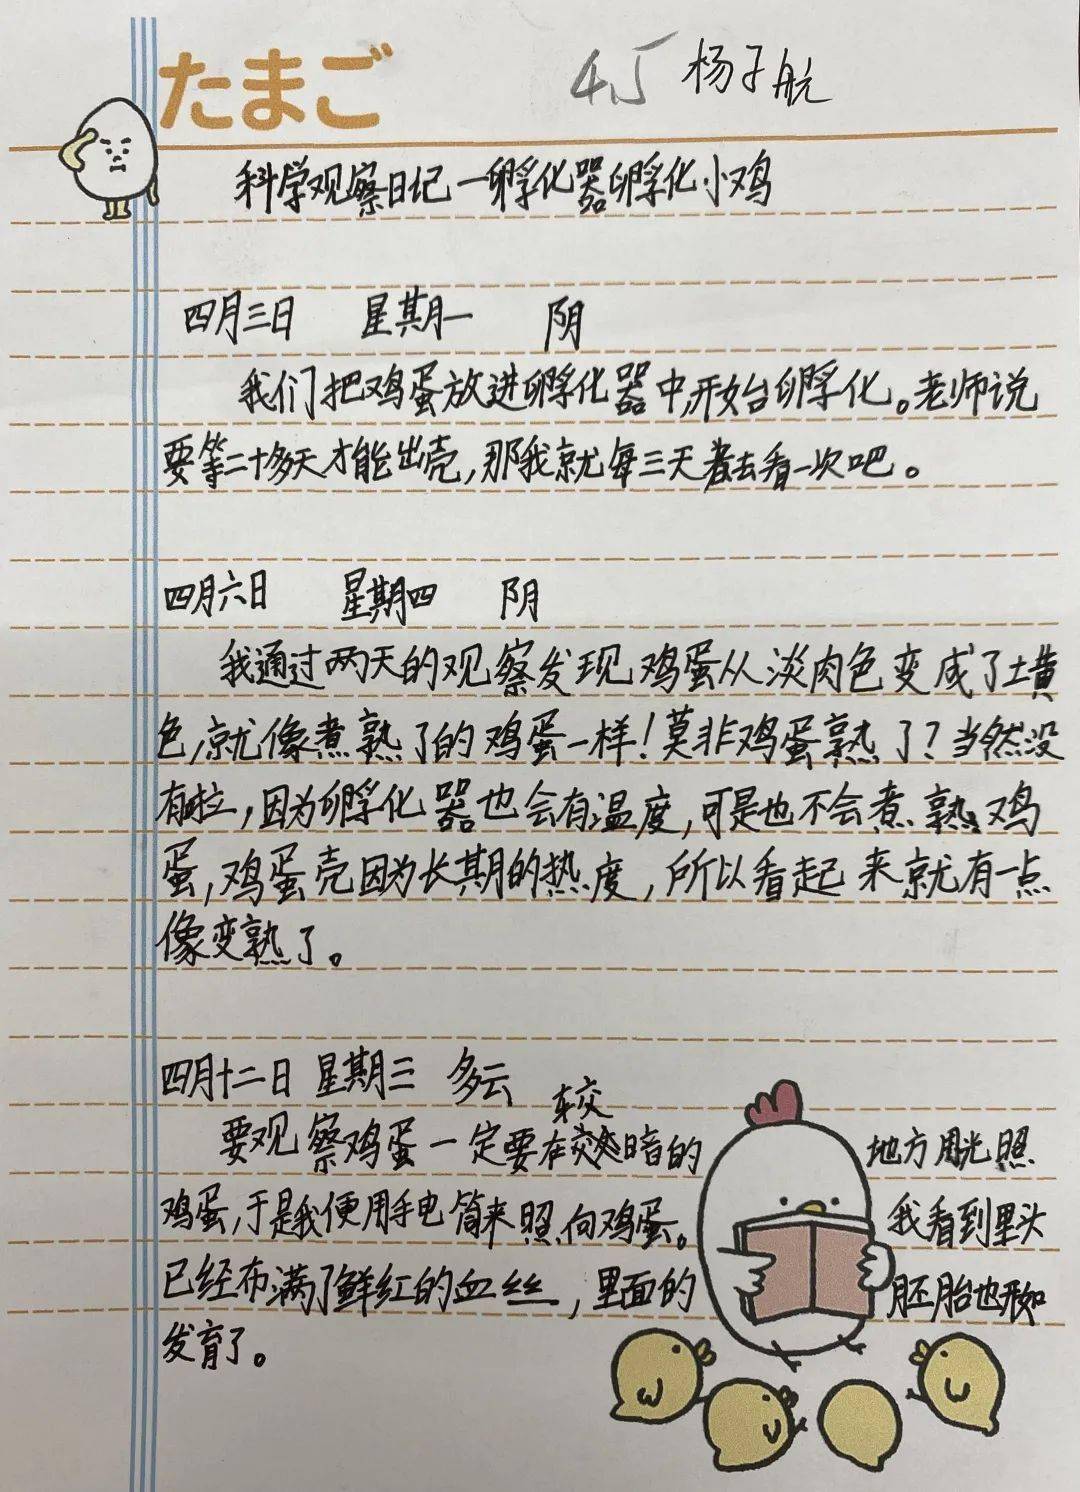 たまご
4.5 杨子航
科学观察日记一孵化器孵化小鸡
四月三日 星期一 阴
我们把鸡蛋放进孵化器中,开始孵化。老师说
要等二十多天才能出壳,那我就每三天去看一次吧。
四月六日 星期四 阴
我通过两天的观察发现鸡蛋从淡肉色变成了土黄
色,就像煮熟了的鸡蛋一样!莫非鸡蛋熟了?当然没
有啦,因为孵化器也会有温度,可是也不会煮熟鸡
蛋,鸡蛋壳因为长期的热度,所以看起来就有一点
像变熟了。
四月十二日 星期三 多云
要观察鸡蛋一定要在较暗的地方用光照
鸡蛋,于是我便用手电筒来照向鸡蛋。我看到里头
已经布满了鲜红的血丝,里面的胚胎也
发育了。